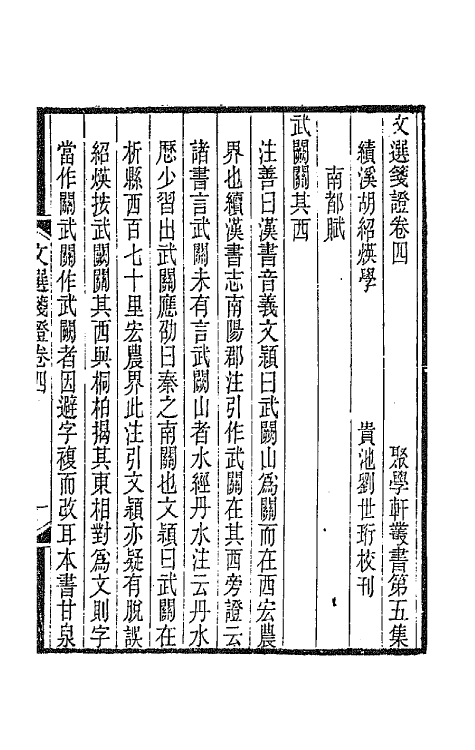 文選箋證卷四　聚學軒叢書第五集
績溪胡紹煐學　貴池劉世珩校刊
南都賦
武闕關其西
注善曰漢書音義文穎曰武闕山為關而在西宏農
界也續漢書志南陽郡注引作武關在其西旁證云
諸書言武關未有言武闕山者水經丹水注云丹水
歷少習出武關應劭曰秦之南關也文穎曰武關在
析縣西百七十里宏農界此注引文穎亦疑有脫誤
紹煐按武闕關其西與桐柏揭其東相對為文則字
當作關武關作武闕者因避字複而改耳本書甘泉
文選箋證卷四　一